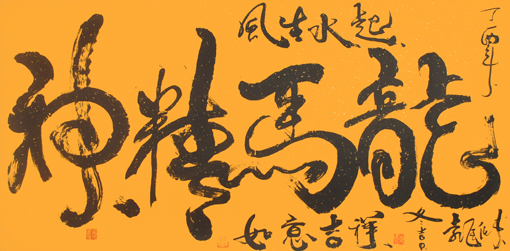 丁酉年
龍馬精神
風生水起
如意吉祥
冬吉日